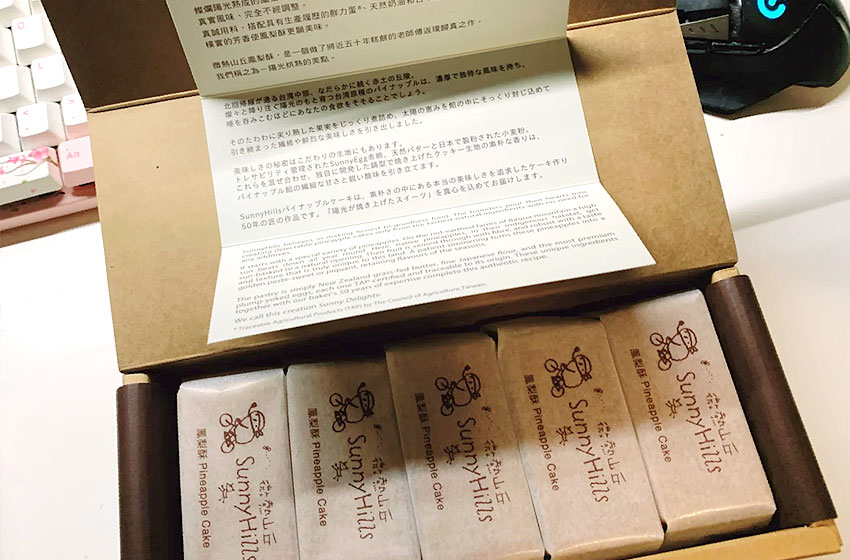 燦爛陽光熟成的鳳
真實風味、完全不經調整。
真誠用料，搭配具有生產履歷的鮮力蛋*、天然奶油和日
樸實的芳香使鳳梨酥更顯美味。
微熱山丘鳳梨酥，是一個做了將近五十年糕餅的老師傅返璞歸真之作。
我們稱之為—陽光烘熟的美點。
北回帰線が通る台湾中部、なだらかに続く赤土の丘陵。
燦々と降り注ぐ陽光のもと育つ台湾原種のパイナップルは、濃厚で独特な風味を持ち、
唾を呑みこむほどにあなたの食欲をそそることでしょう。
そのたわわに実り熟した果実をじっくり煮詰め、太陽の恵みを餡の中にそっくり封じ込めて
引き締まった繊維や鮮烈な美味しさを引き出しました。
美味しさの秘密はこだわりの生地にもあります。
トレサビリティ管理されたSunnyEgg名卵、天然バターと日本で製粉された小麦粉。
これらを混ぜ合わせ、独自に開発した鋳型で焼き上げたクッキー生地の素朴な香りは、
パイナップル餡の繊細な甘さと鋭い酸味を引き立てます。
SunnyHillsパイナップルケーキは、素朴さの中にある本当の美味しさを追求したケーキ作り
50年の匠の作品です。「陽光が焼き上げたスイーツ」を真心を込めてお届けします。
SunnyHills believes in making honest to goodness food. The founders pour their hearts into
creating delectable pineapple cakes
any additives.
It starts with a special variety of pineapples. On the red earthed farms of Bagua mountain a high
sun beats down all year round. Here, native pineapples, in their indigenous habitat, get
sun-baked to a natural opening. Their fruit is veined through with fibre, and robust with a taste
and texture that is truly unique to this land. A patient simmering turns these pineapples into a
golden paste-sweet or piquant, retaining flavours of the seasons.
The pastry is simply New Zealand grass-fed butter, fine Japanese flour, and the most premium
plump-yoked eggs, each one TAP-certified and traceable to its origin. These unique ingredients
together with our baker's 50 years of expertise complete this authentic recipe.
We call this creation Sunny Delights.
* Traceable Agricultural Products (TAP) by The Council of Agriculture,Taiwan.
Alt
微熱山丘
SunnyHills
鳳梨酥 Pineapple Cake
微熱山丘
SunnyHills
鳳梨酥 Pineapple Cake
微熱山丘
SunnyHills
鳳梨酥 Pineapple Cake
微熱山丘
SunnyHills
鳳梨酥 Pineapple Cake
微熱山丘
SunnyHills
鳳梨酥 Pineapple Cake